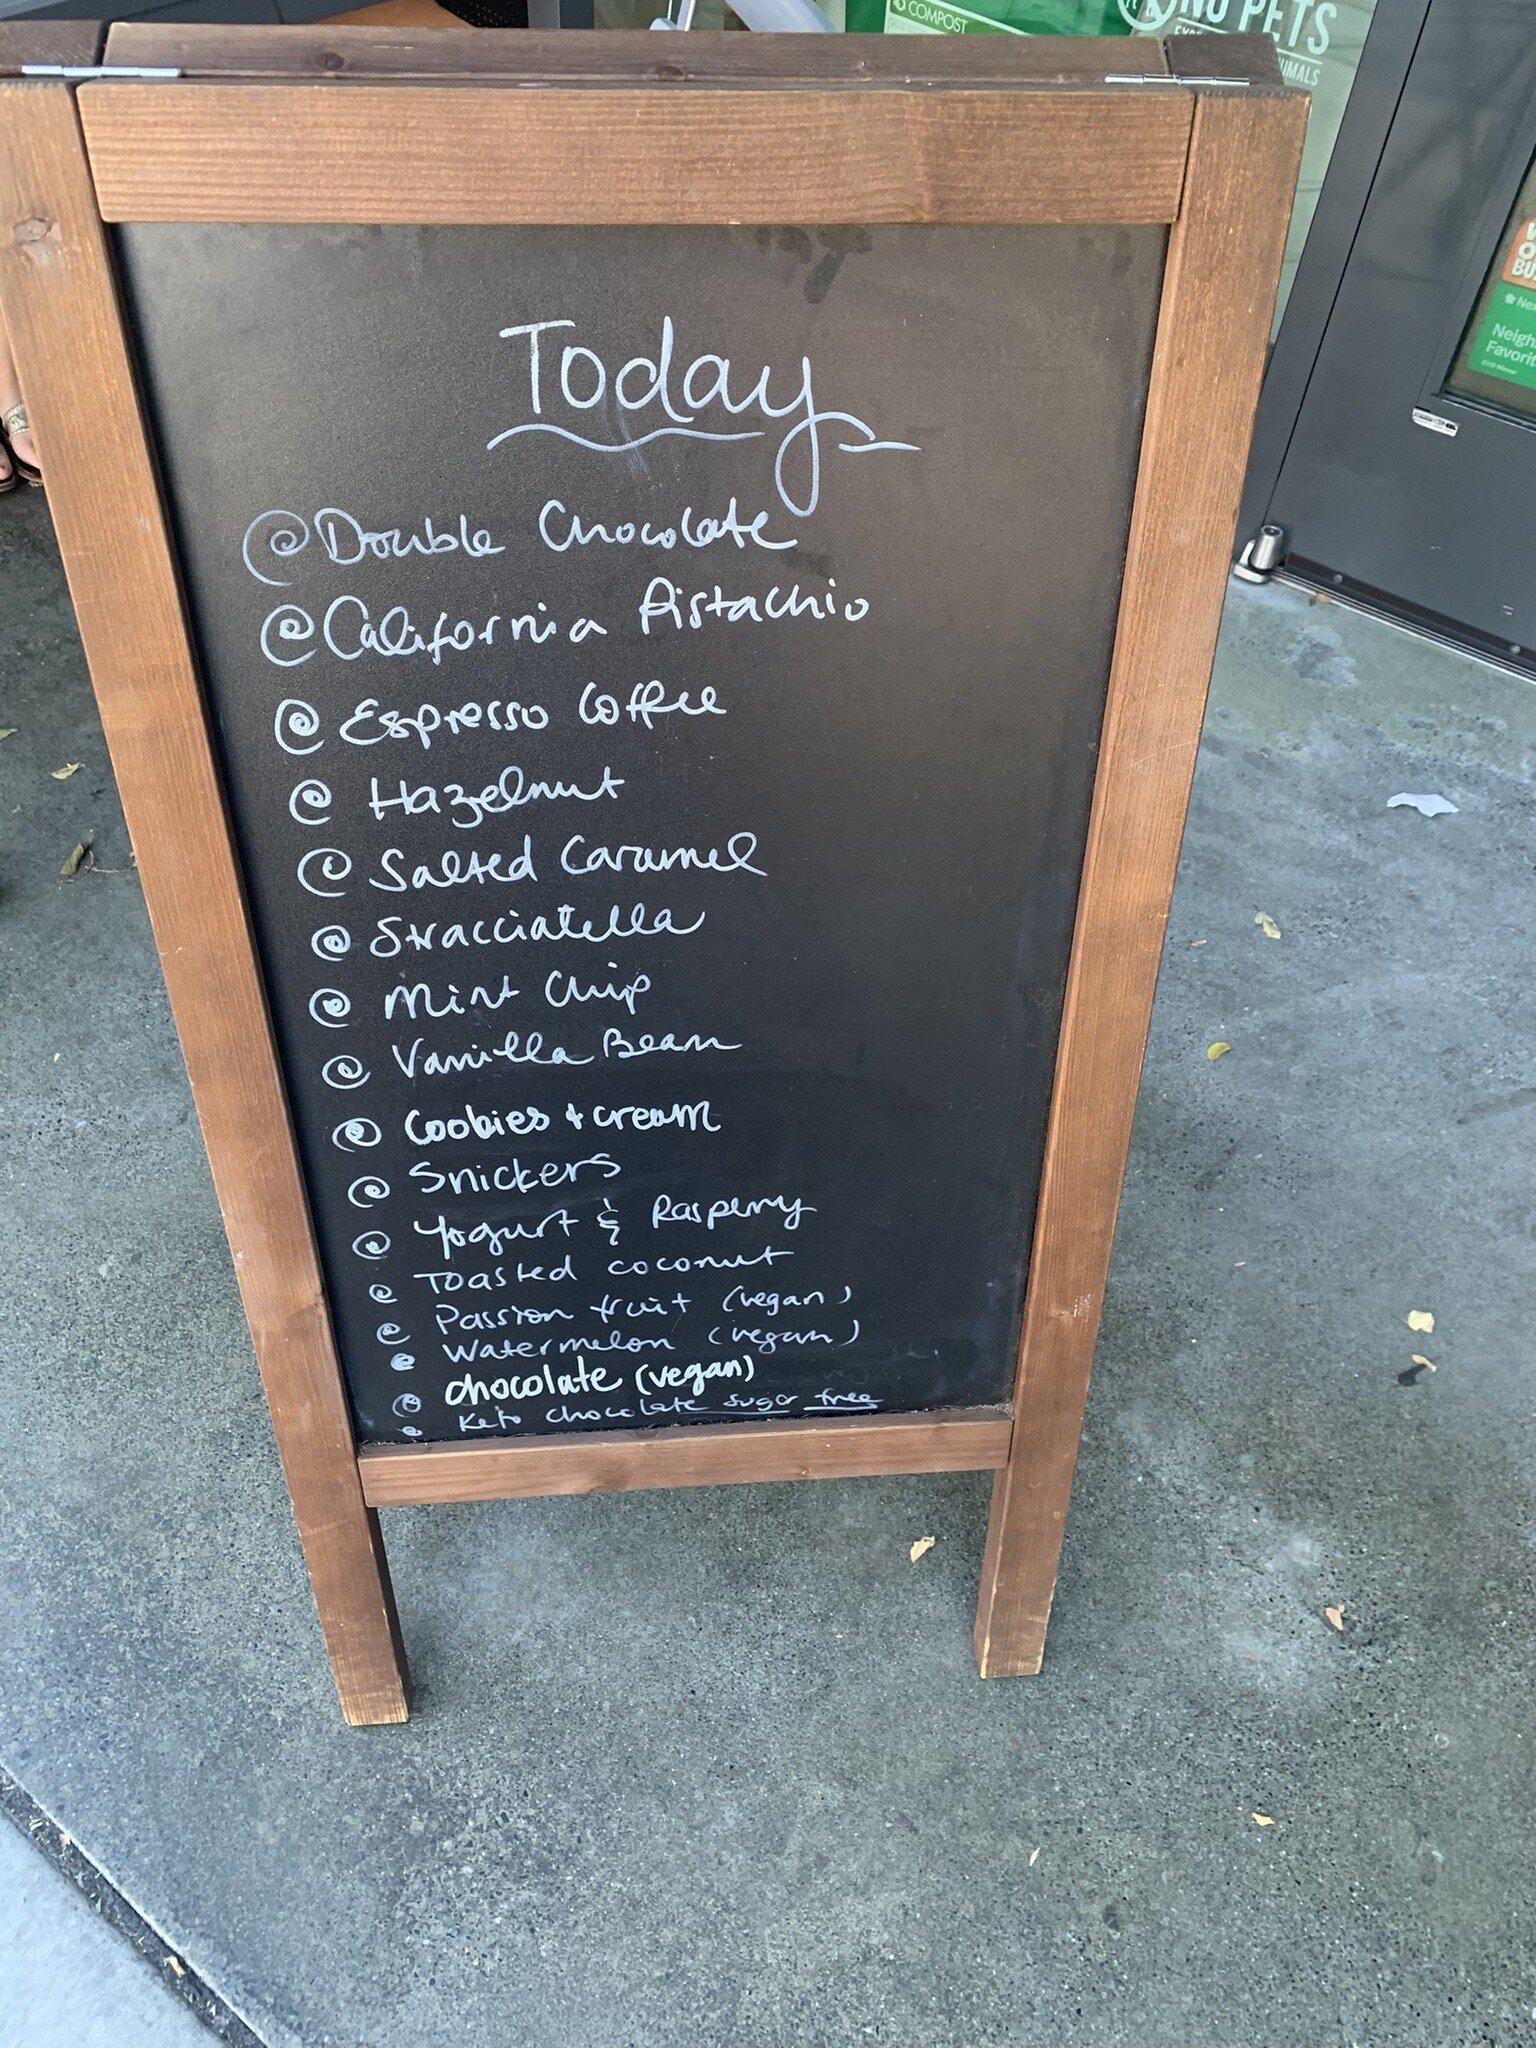 COMPOST
NO PETS
Today
@ Double Chocolate
@ California Pistachio
@ Espresso Coffee
@ Hazelnut
@ Salted Caramel
@ Stracciatella
@ Mint Chip
@ Vanilla Bean
@ Cookies + cream
@ Snickers
@ Yogurt & Rasperry
@ Toasted coconut
@ Passion fruit (vegan)
@ Watermelon (vegan)
@ chocolate (vegan)
@ Keto chocolate sugar free
2019 Winner